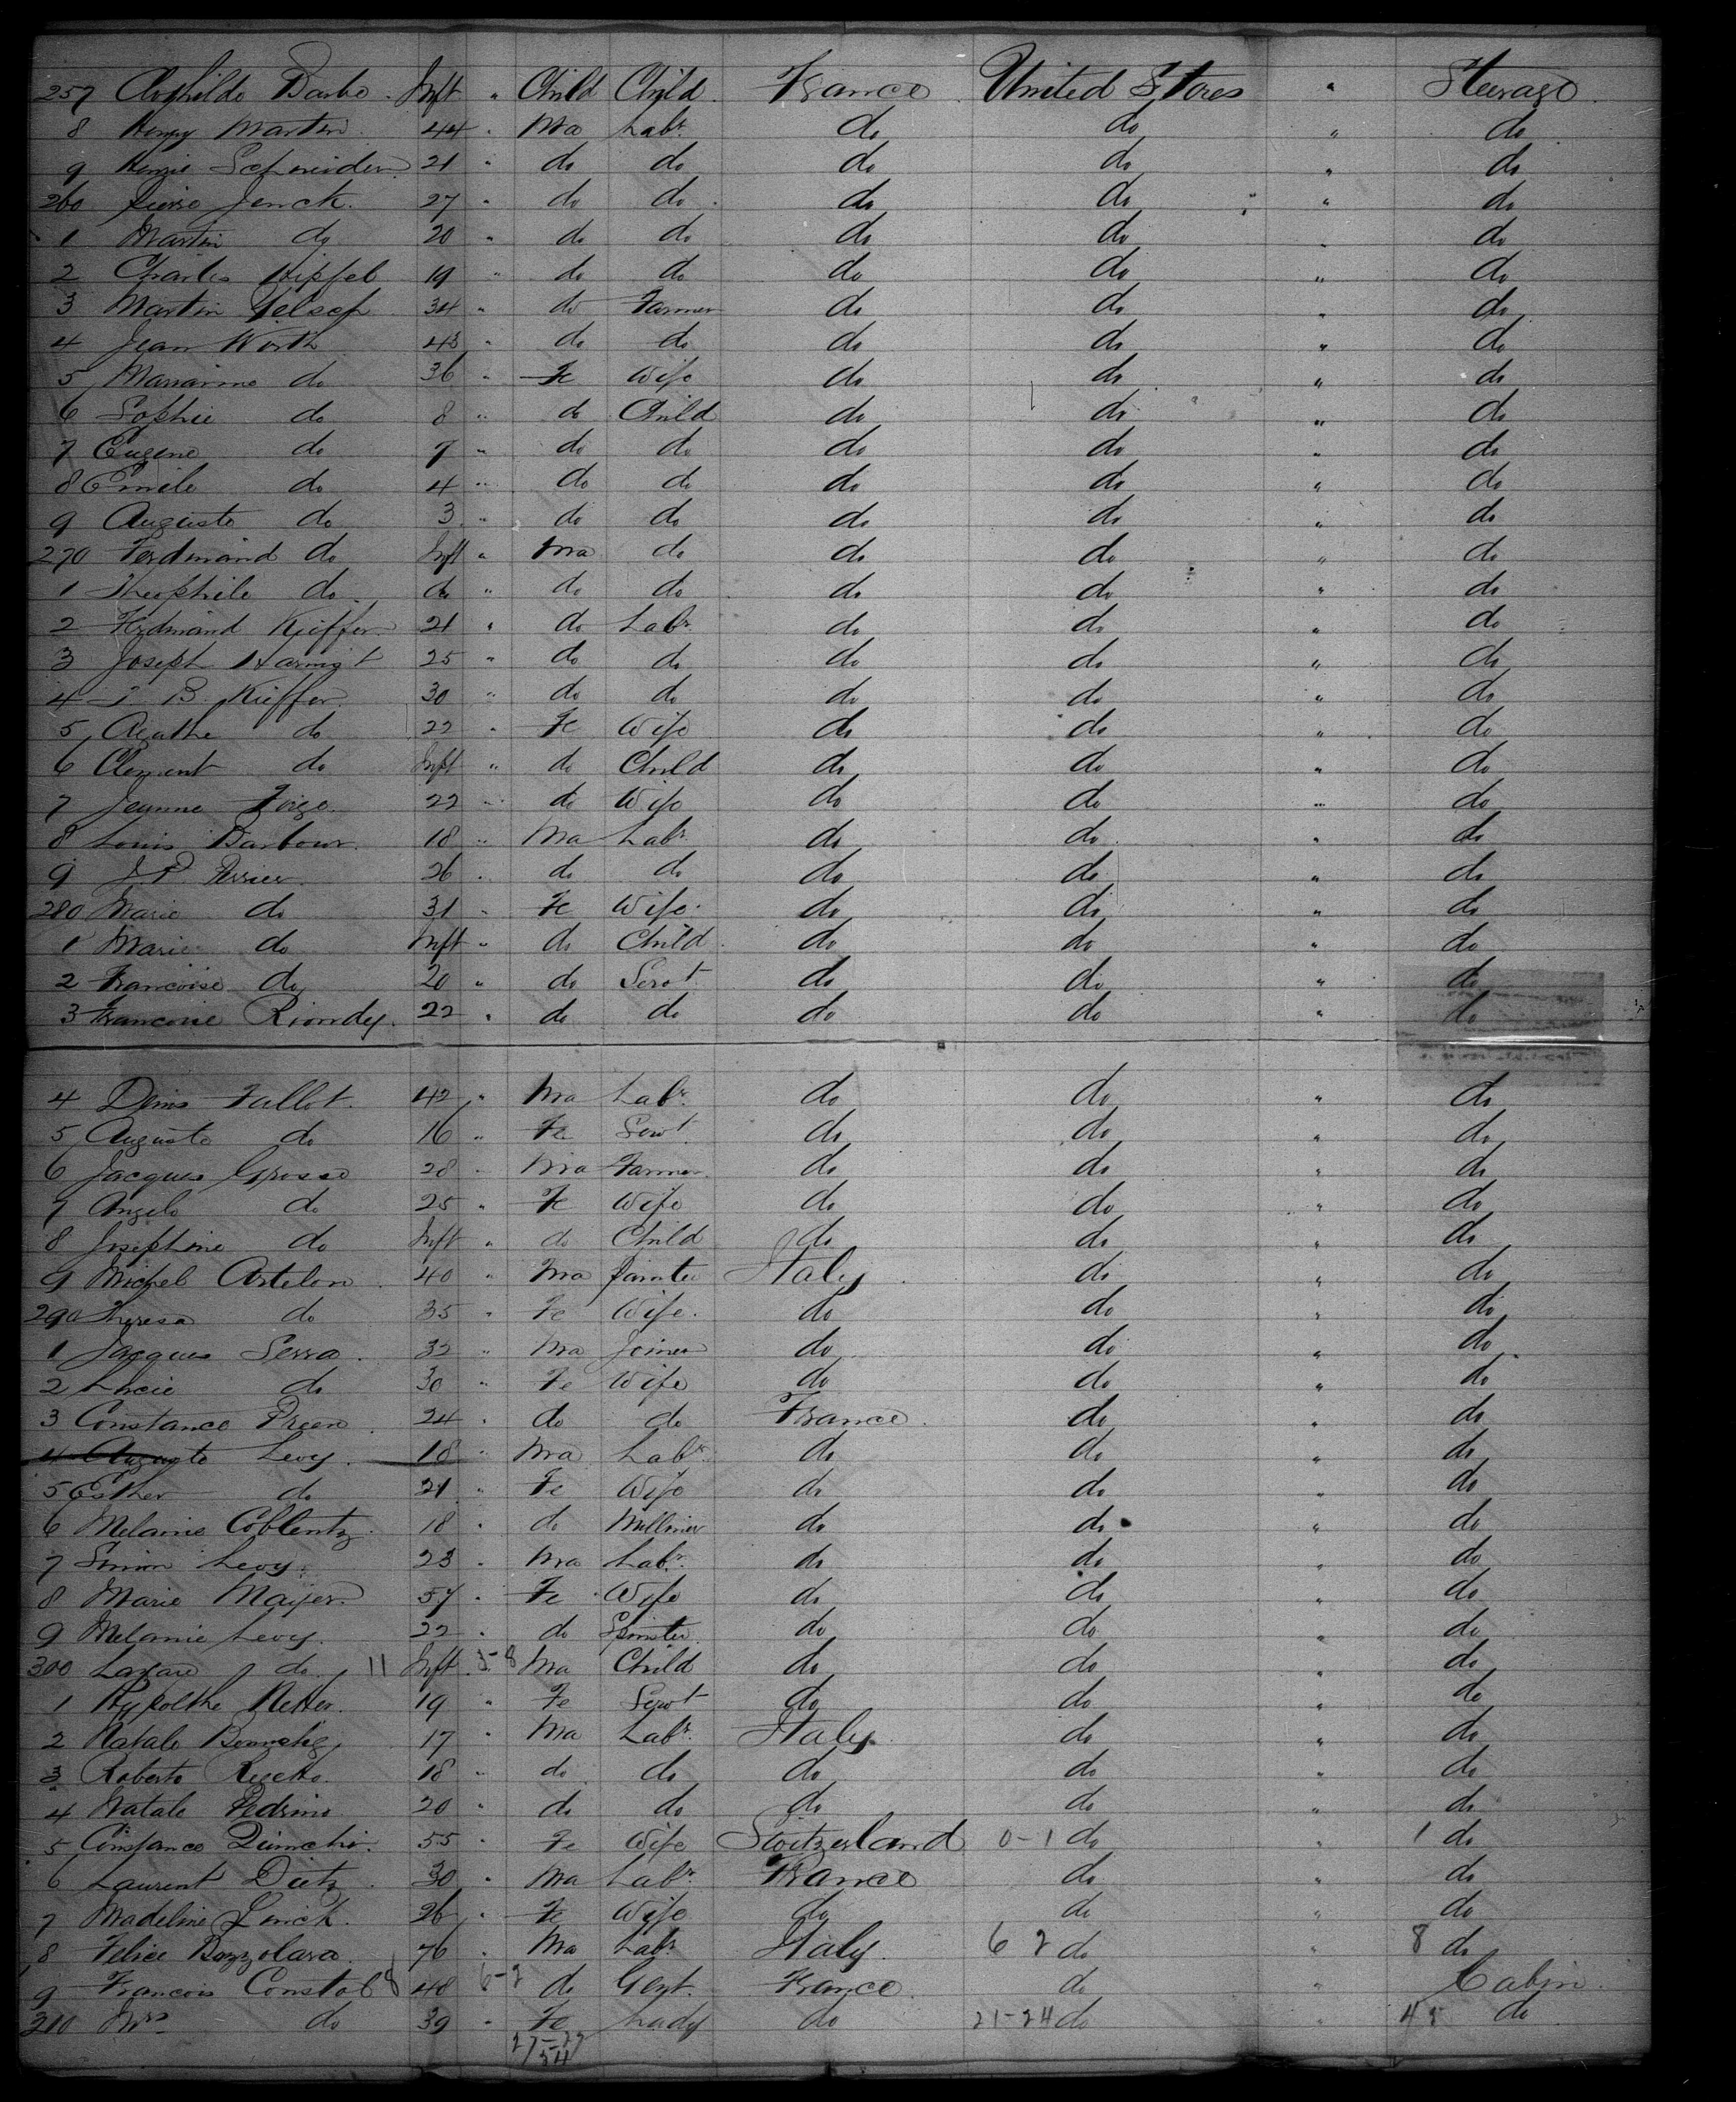 257 Clothilde Barbe Inft " Child Child France United States " Steerage
8 Henry Martin 44 " Ma Labr do do " do
9 Schneider 21 " do do do do " do
260 Pierre Jenck 27 " do do do do " do
1 Martin do 20 " do do do do " do
2 Charles Hipfel 19 " do do do do " do
3 Martin 34 " do Farmer do do " do
4 Jean Wirth 43 " do do do do " do
5 Marianne do 36 " Fe Wife do do " do
6 Sophie do 8 " do Child do do " do
7 Eugene do 7 " do do do do " do
8 Emile do 4 " do do do do " do
9 Auguste do 3 " do do do do " do
270 Ferdinand do Inft " Ma do do do " do
1 Theophile do do " do do do do " do
2 Ferdinand Kieffer 21 " do Labr do do " do
3 Joseph 25 " do do do do " do
4 J B Kieffer 30 " do do do do " do
5 Agathe do 22 " Fe Wife do do " do
6 Clement do Inft " do Child do do " do
7 Jeanne 22 " do Wife do do " do
8 Louis Barbour 18 " Ma Labr do do " do
9 J. P. Perrier 26 " do do do do " do
280 Marie do 31 " Fe Wife do do " do
1 Marie do Inft " do Child do do " do
2 Francoise do 20 " do Servt do do " do
3 Francoise Riondy 22 " do do do do " do
4 Denis Fallot 42 " Ma Labr do do " do
5 Auguste do 16 " Fe Servt do do " do
6 Jacques Grosso 28 " Ma Farmer do do " do
7 Angelo do 25 " Fe Wife do do " do
8 Josephine do Inft " do Child do do " do
9 Michel Artelon 40 " Ma Painter Italy do " do
290 Theresa do 35 " Fe Wife do do " do
1 Jacques Serra 32 " Ma Joiner do do " do
2 Lucie do 30 " Fe Wife do do " do
3 Constance 24 " do do France do " do
4 Auguste Levy 18 " Ma Labr do do " do
5 Esther do 21 " Fe Wife do do " do
6 Melanie Coblentz 18 " do Milliner do do " do
7 Simon Levy 23 " Ma Labr do do " do
8 Marie Mayer 57 " Fe Wife do do " do
9 Melanie Levy 22 " do Spinster do do " do
300 Lazare do 11 Inft 3-8 Ma Child do do " do
1 Netter 19 " Fe Servt do do " do
2 Natale 17 " Ma Labr Italy do " do
3 Roberto 18 " do do do do " do
4 Natale Pedrino 20 " do do do do " do
5 Constance 55 " Fe Wife Switzerland 0-1 do " 1 do
6 Laurent Dietz 30 " Ma Labr France do " do
7 Madeline 26 " Fe Wife do do " do
8 Felice Bozzolara 76 " Ma Labr Italy 6 2 do " 8 do
9 Francois Constab 8 48 6-2 do Gent. France do " Cabin
310 Mrs do 39 " Fe Lady do 21-24 do " 45 do
27-27
54